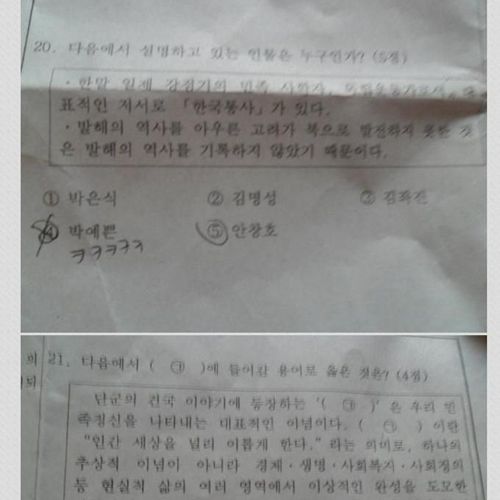 20. 다음에서 설명하고 있는 인물은 누구인가? (5점)
· 한말 일제 강점기의 민족 사학자, 독립운동가로서, 대
표적인 저서로 「한국통사」가 있다.
· 발해의 역사를 아우른 고려가 북으로 발전하지 못한 것
은 발해의 역사를 기록하지 않았기 때문이다.
① 박은식 ② 김명성 ③ 김좌진
④ 박예쁜 ⑤ 안창호
ㅋㅋㅋㅋㅋ
의
되
21. 다음에서 ( ㉠ )에 들어갈 용어로 옳은 것은? (4점)
단군의 건국 이야기에 등장하는 '( ㉠ )' 은 우리 민
족정신을 나타내는 대표적인 이념이다. ( ㉠ ) 이란
"인간 세상을 널리 이롭게 한다." 라는 의미로, 하나의
추상적 이념이 아니라 경제·생명·사회복지·사회정의
등 현실적 삶의 여러 영역에서 이상적인 완성을 도모한